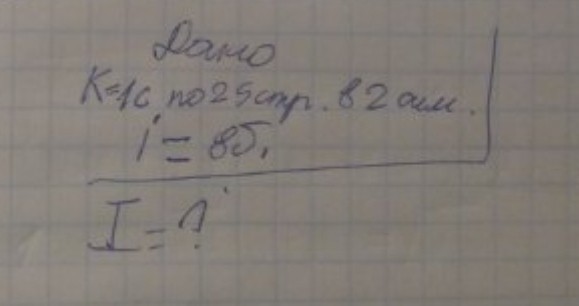 Дано
K=1с по 25 стр. в 2 сим.
i = 8б.
I = ?